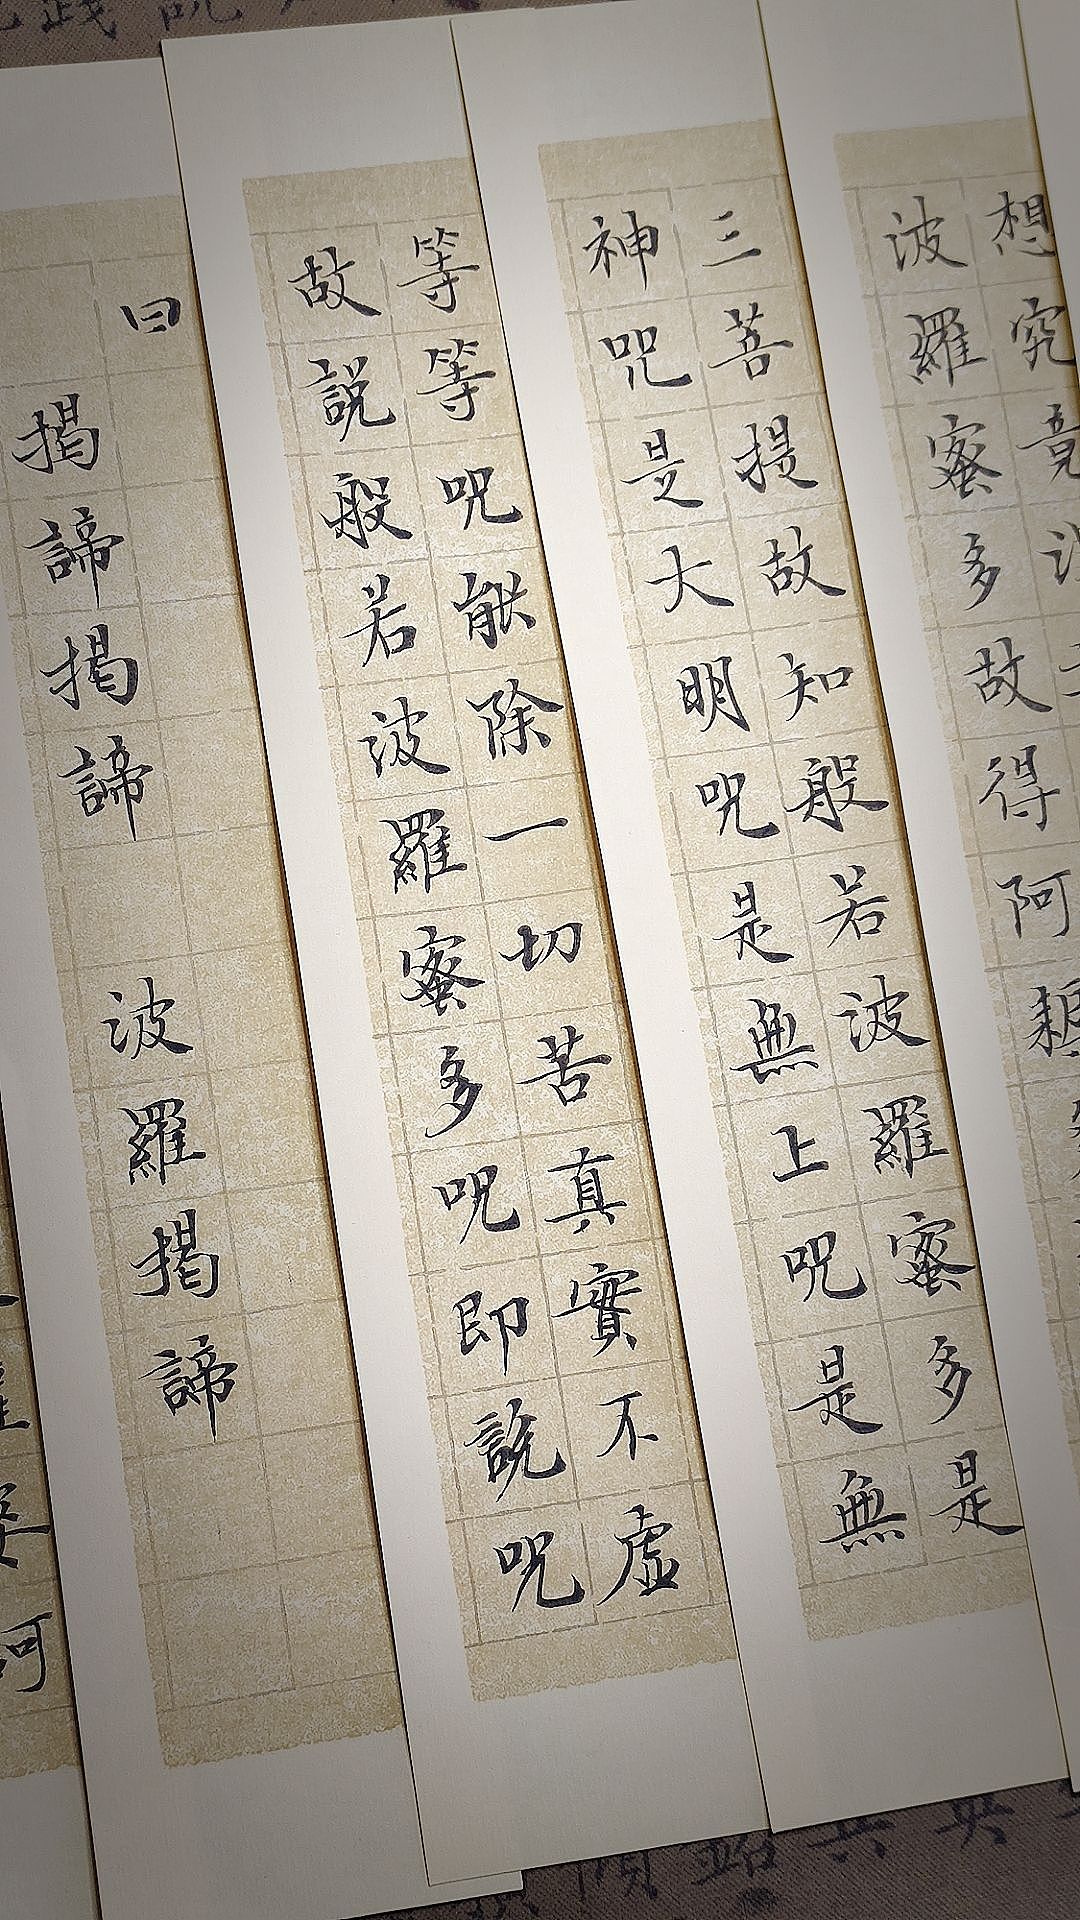 想究竟
波羅蜜多故得阿耨
三菩提故知般若波羅蜜多是
神咒是大明咒是無上咒是無
等等咒能除一切苦真實不虛
故説般若波羅蜜多咒即説咒
曰
揭諦揭諦 波羅揭諦